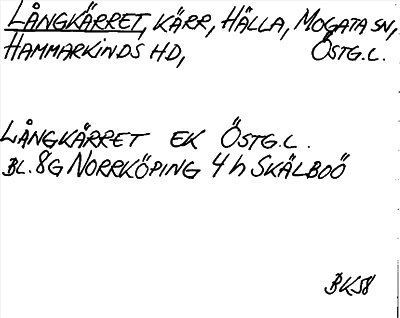 LÅNGKÄRRET, KÄRR, HÄLLA, MOGATA SN,
HAMMARKINDS HD, ÖSTG.L.
LÅNGKÄRRET EK ÖSTG.L.
BL. 8G NORRKÖPING 4h SKÄLBOÖ
BK58